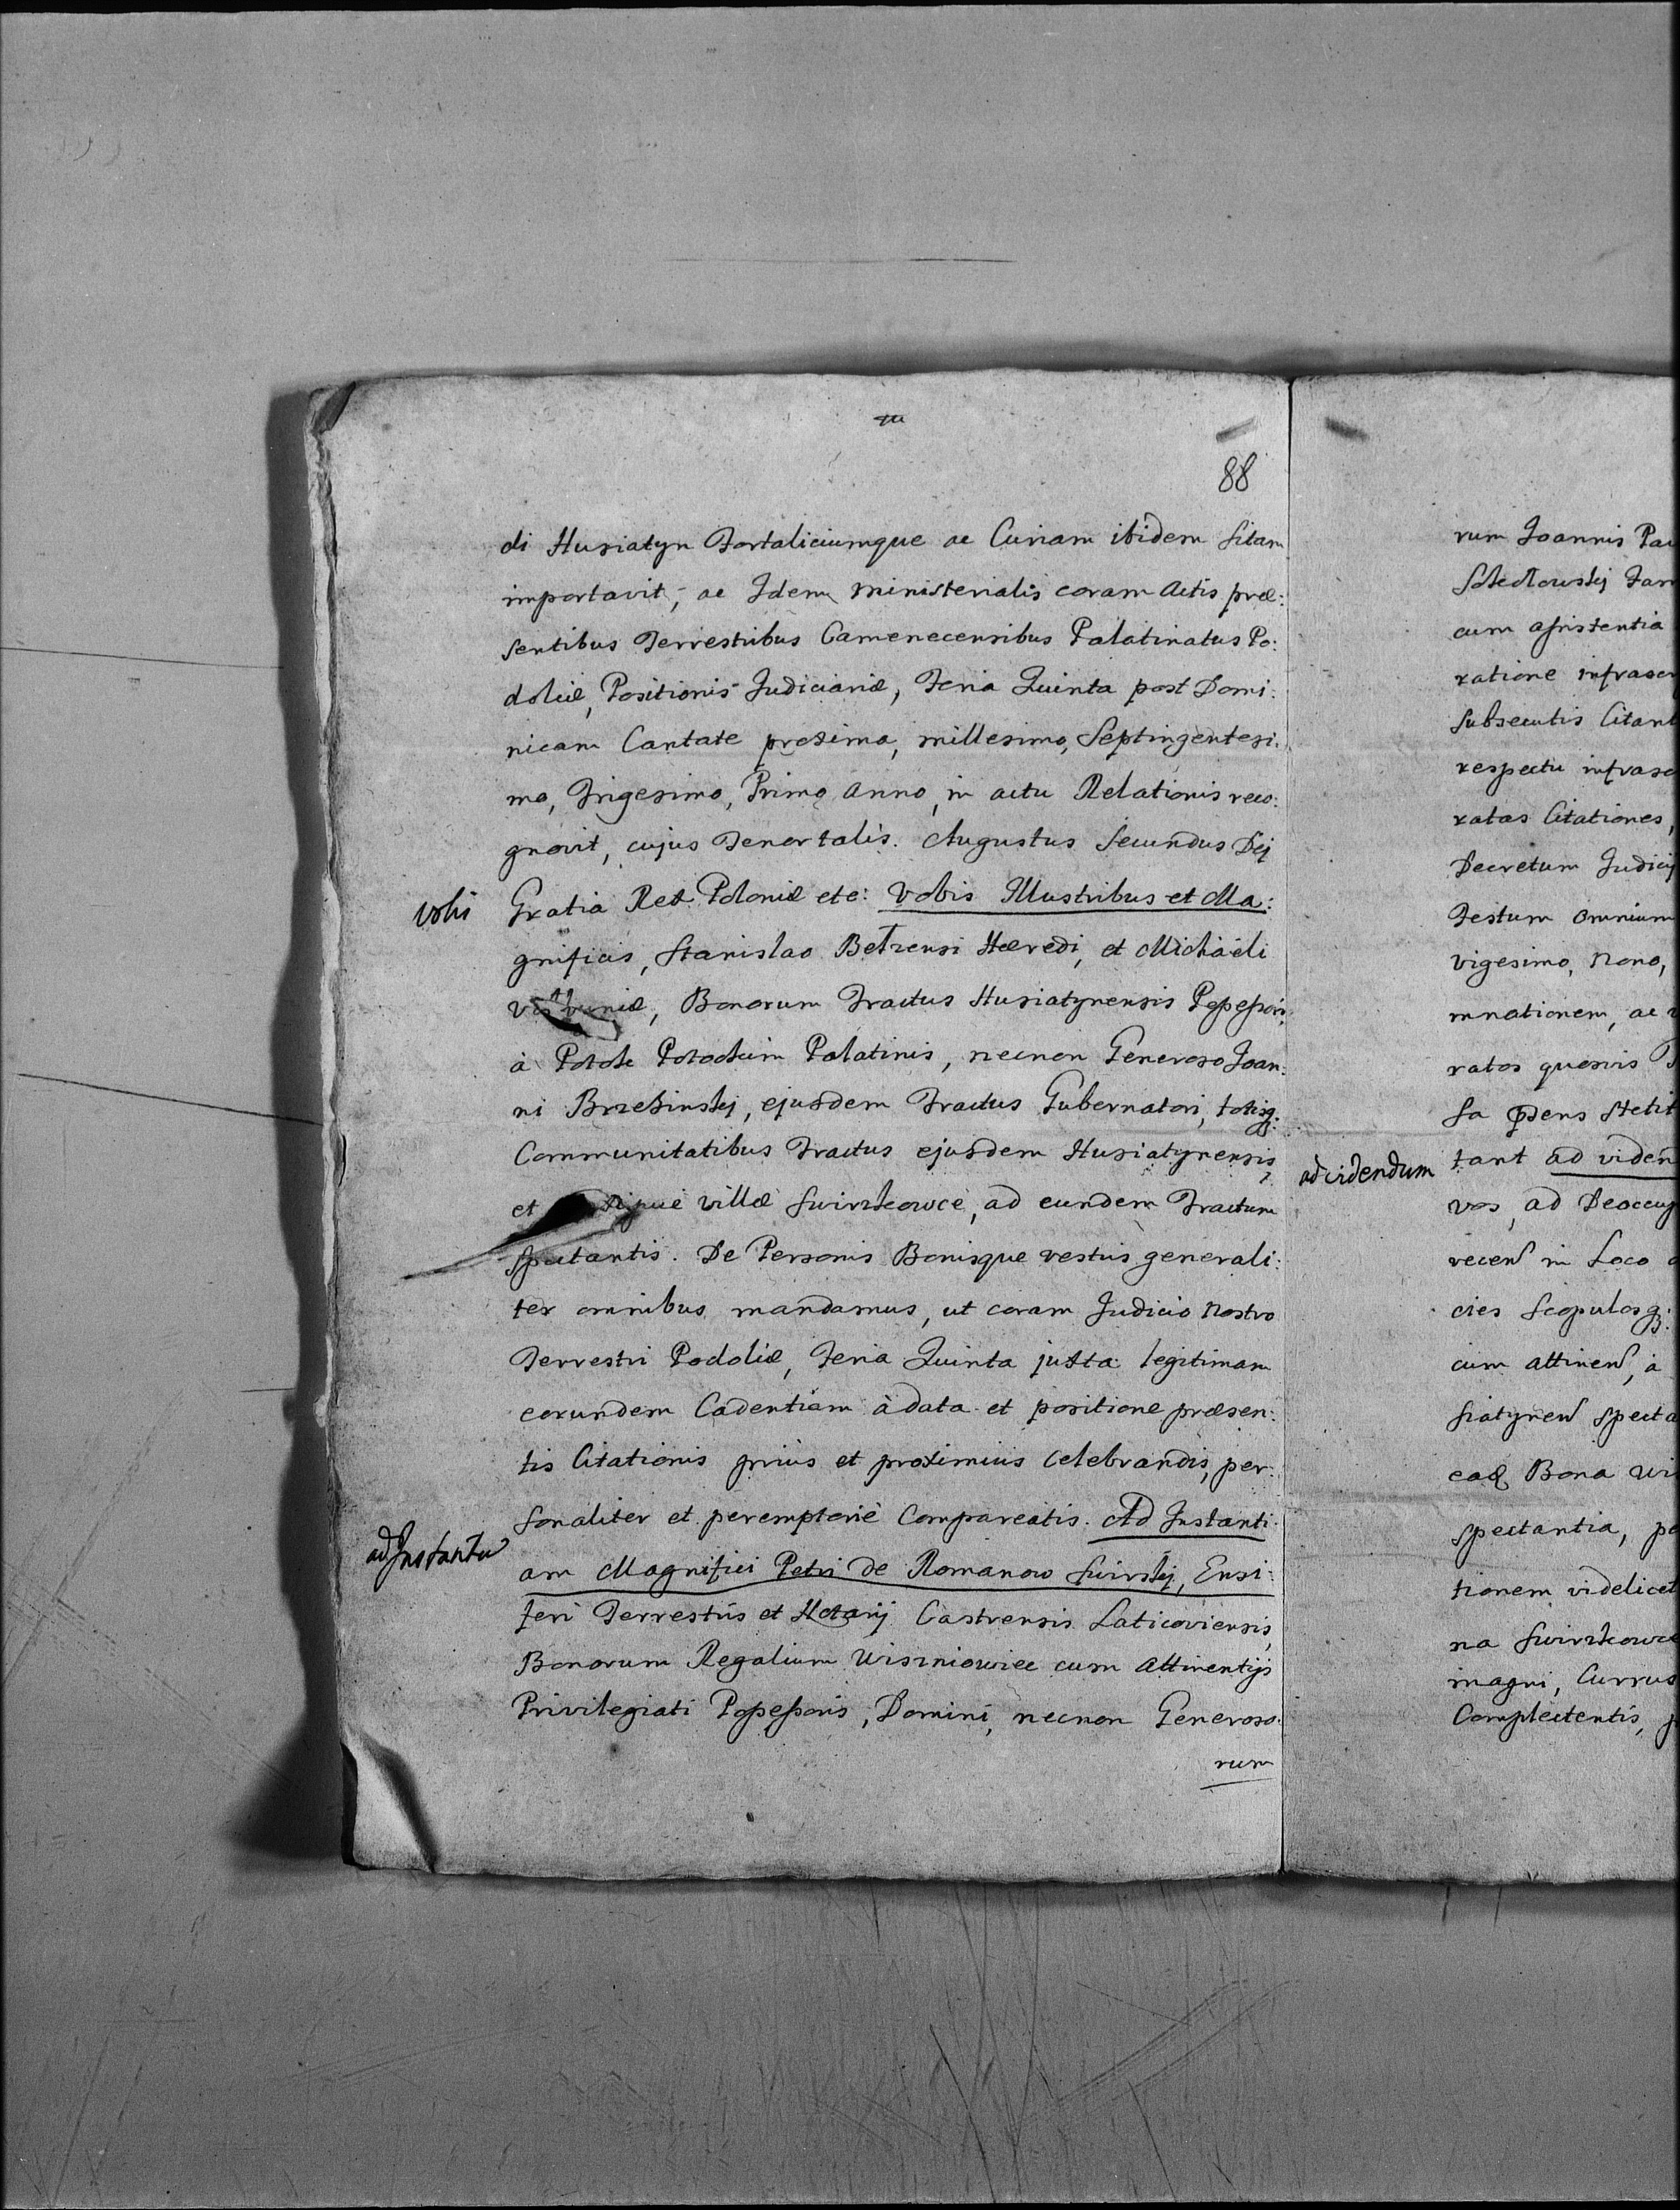 88
di Husiatyn Fortaliciumque ac Curiam ibidem sitam
importavit, ac Idem ministerialis coram Actis præ:
sentibus Terrestribus Camenecensibus Palatinatus Po:
doliæ, Positionis Judiciariæ, Feria Quinta post Domi:
nicam Cantate proxima, millesimo, Septingentesi:
mo, Trigesimo, Primo Anno, in actu Relationis reco:
gnovit, cujus Tenor talis. Augustus Secundus Dej
vobis
Gratia Rex Poloniæ etc: Vobis Illustribus et Ma:
gnificis, Stanislao Belzensi Hæredi, et Michaeli
Bonorum Tractus Husiatynensis Possessori,
à Potok Potockim Palatinis, necnon Generoso Joan:
ni Brzezinskj, ejusdem Tractus Gubernatori, totisq:
Communitatibus Tractus ejusdem Husiatynensis,
et villæ Swirzkowce, ad eundem Tractum
spectantis. De Personis Bonisque vestris generali:
ter omnibus mandamus, ut coram Judicio nostro
Terrestri Podoliæ, Feria Quinta juxta legitimam
eorundem Cadentiam à data et positione præsen:
tis Citationis prius et proximius celebrandis, per:
sonaliter et peremptoriè Compareatis. Ad Instanti:
ad Instantia
am Magnifici Petri de Romanow Swirskj, Ensi:
feri Terrestris et Notarij Castrensis Laticoviensis,
Bonorum Regalium Wiszniowiec cum Attinentijs
Privilegiati Possessoris, Domini, necnon Generoso:
rum
rum Joannis Pau
cum assistentia
ratione infrascr
subsecutis Citant
respectu infrasc
ratas Citationes,
Decretum Judicij
Festum omnium
vigesimo, nono,
mnationem, ac
ratos quosvis
sa stetit
ad videndum
tant ad viden
vos, ad Deoccup
recen in Loco
cies scopulosq:
cum attinen, à
siatynen specta
eaq Bona
spectantia, pe
tionem videlicet
na Swirzkowce
magni, Currus
Complectentis,